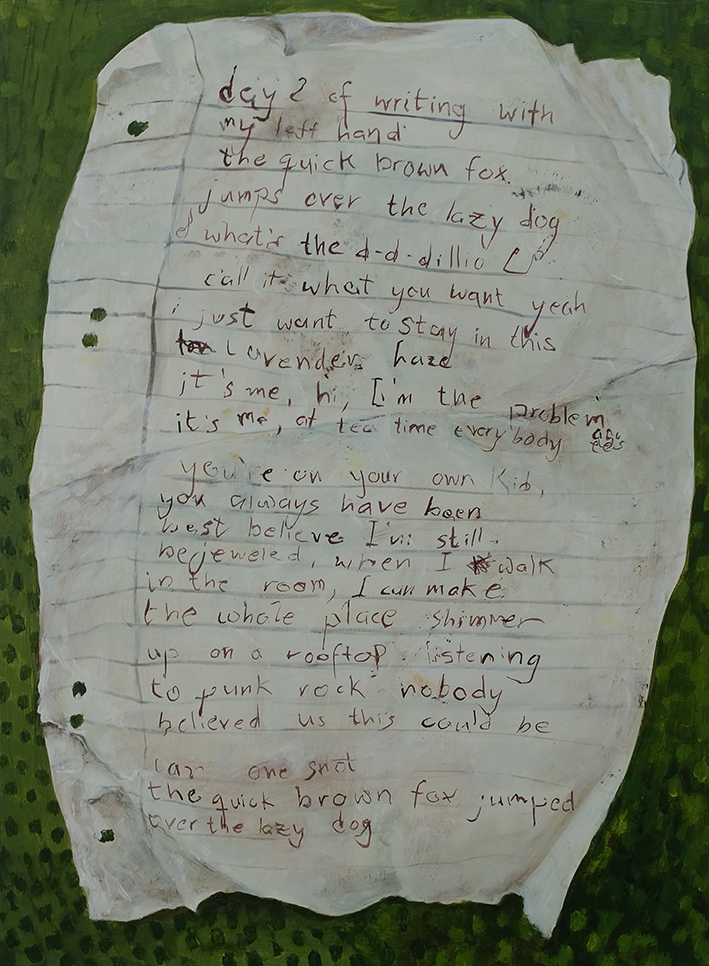 day 2 of writing with
my left hand
the quick brown fox
jumps over the lazy dog
what's the d-d-dillio
call it what you want yeah
i just want to stay in this
lavender haze
it's me, hi, I'm the problem
it's me, at tea time everybody
you're on your own kid,
you always have been
best believe I'm still
bejeweled, when I walk
in the room, I can make
the whole place shimmer
up on a rooftop listening
to punk rock nobody
believed us this could be
one shot
the quick brown fox jumped
over the lazy dog